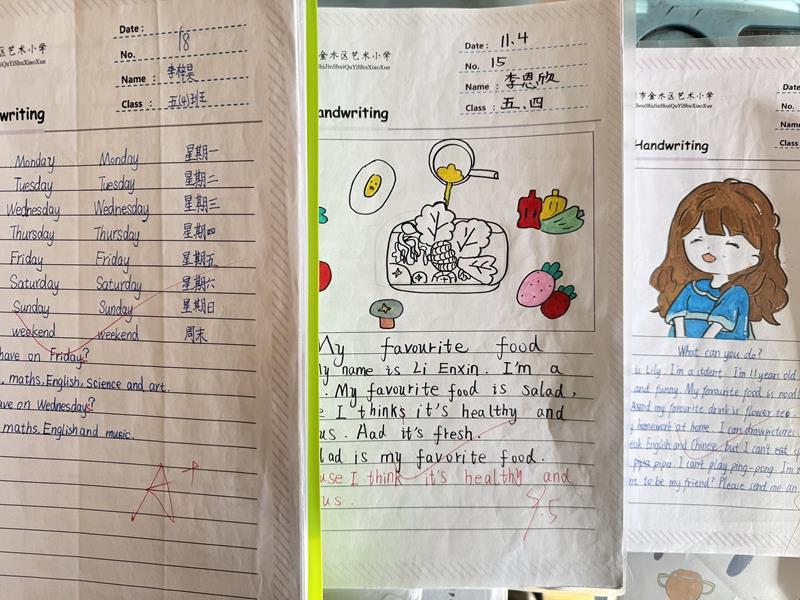 区艺术小学
ShiJinShuiQuYiShuXiaoXue
Date :
No. 18
Name : 李梓昊
Class : 五(4)班
writing
Monday Monday 星期一
Tuesday Tuesday 星期二
Wednesday Wednesday 星期三
Thursday Thursday 星期四
Friday Friday 星期五
Saturday Saturday 星期六
Sunday Sunday 星期日
weekend weekend 周末
have on Friday?
, maths, English, science and art.
ave on Wednesdays?
maths, English and music.
A+
金水区艺术小学
hiJinShuiQuYiShuXiaoXue
Date : 11.4
No. 15
Name : 李恩欣
Class : 五、四
andwriting
My favourite food
My name is Li Enxin. I'm a
. My favourite food is salad,
e I thinks it's healthy and
us. Aad it's fresh.
lad is my favorite food.
use I think it's healthy and
us.
9.5
市金水区艺术小学
houShiJinShuiQuYiShuXiaoXue
Date
No.
Name
Class
Handwriting
What can you do?
is Lily. I'm a stdent. I'm 11 years old
and funny. My favourite food is nood
And my favourite drink is flower tee
homework at home. I can draw pictures
eak English and Chinese, but I can't
pipa. I can't play ping-pong. I'm
nt to be my friend? Please send me an